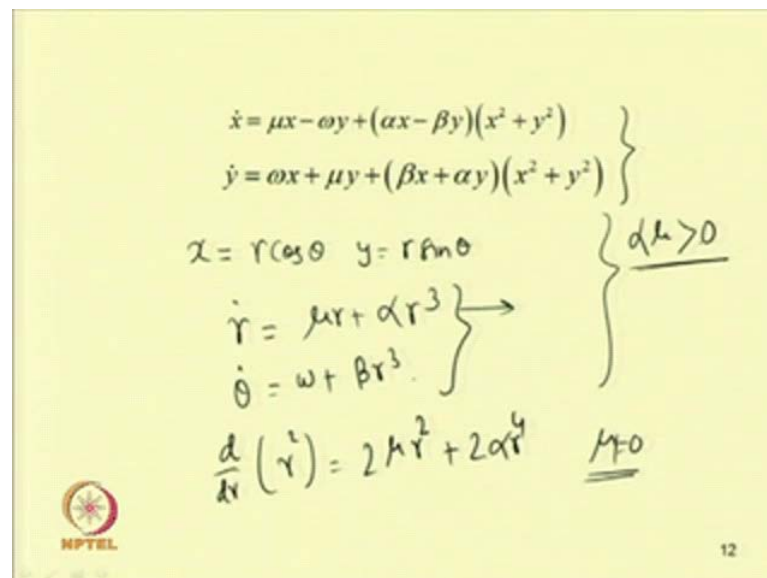 ẋ = μx − ωy + (αx − βy)(x² + y²)
ẏ = ωx + μy + (βx + αy)(x² + y²)
x = r cosθ y = r sinθ
αμ > 0
ṙ = μr + αr³
θ̇ = ω + βr³.
d/dr (r²) = 2μr² + 2αr⁴ μ≠0
NPTEL
12